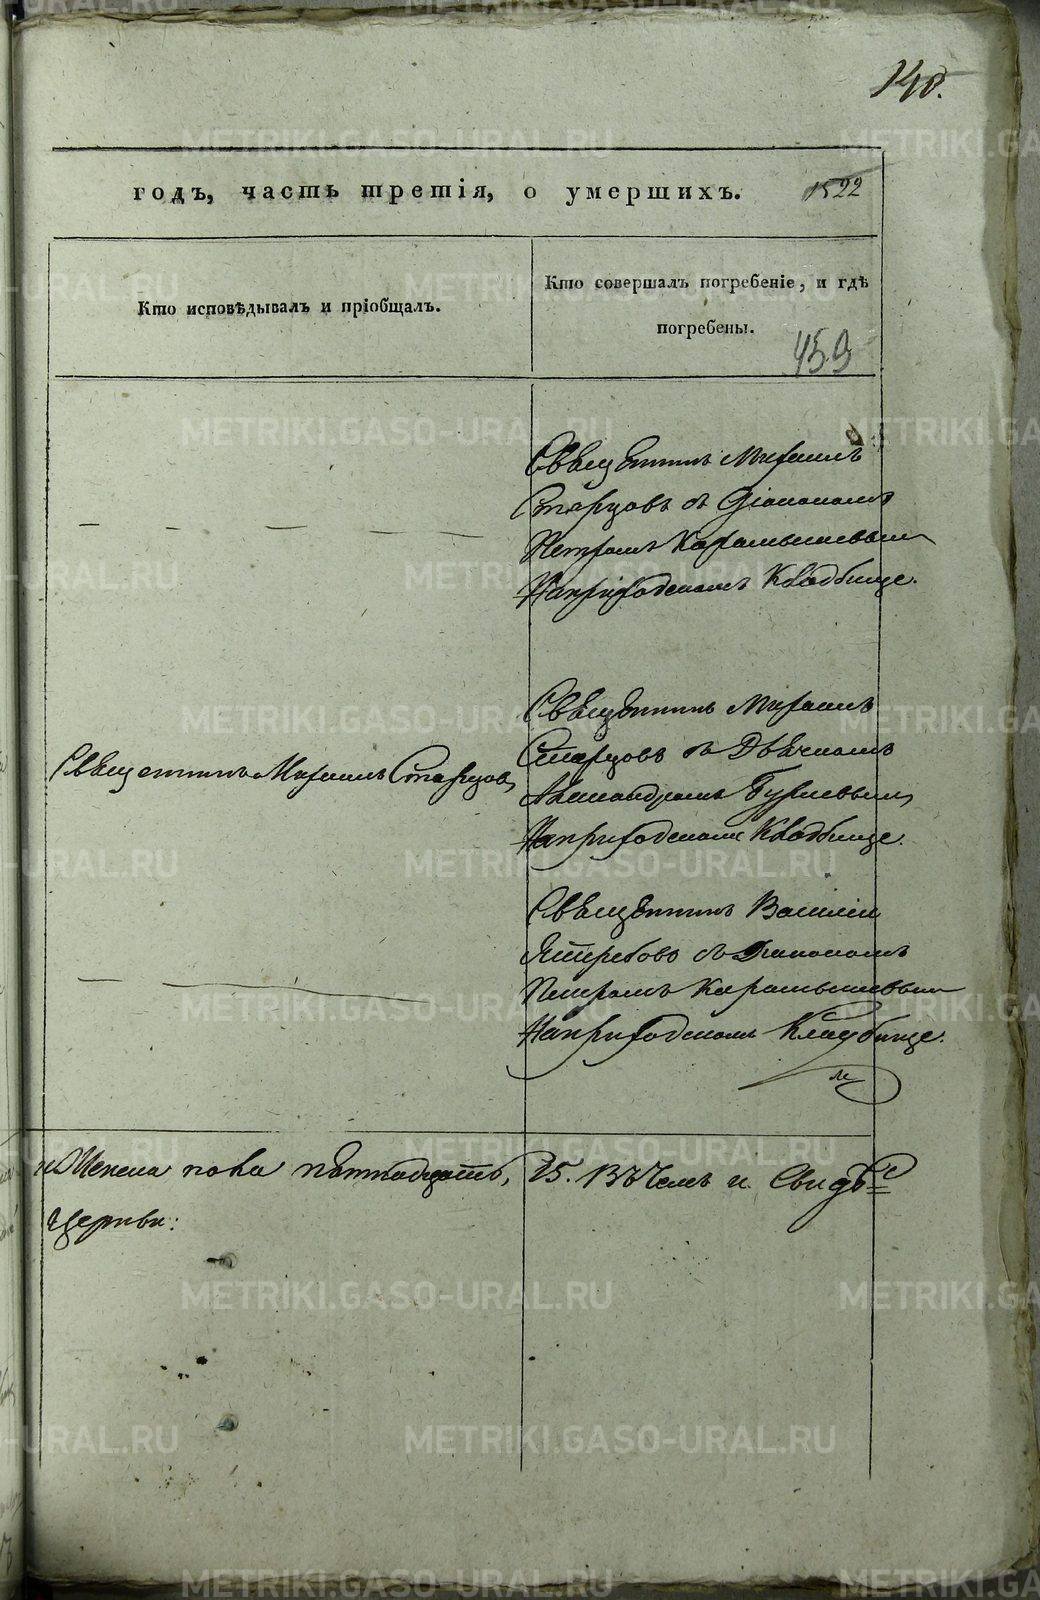 140.
годъ, часть третія, о умершихъ. 1522
Кто исповѣдывалъ и пріобщалъ.
Кто совершалъ погребеніе, и гдѣ
погребены.
459
Священникъ Михаилъ
Старцовъ съ Діакономъ
Петромъ Карамышевым
На приходскомъ Кладбище.
Священникъ Михаилъ Старцов
Священникъ Михаилъ
Старцовъ съ Дьячкомъ
Александромъ
На приходскомъ Кладбище.
Священникъ Василій
Ястребовъ съ Диакономъ
Петромъ Карамышевым
На приходскомъ Кладбище.
и Женска пола пятнадцать, 15. Въ чемъ и Свидѣ
церкви:
METRIKI.GASO-URAL.RU